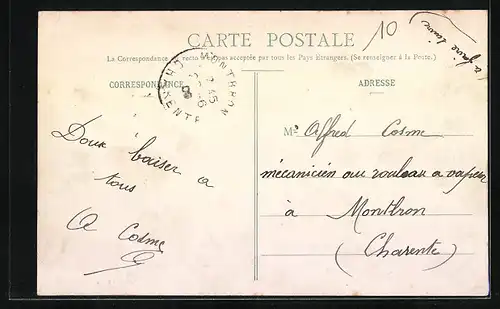 CARTE POSTALE
10
à faire suivre
La Correspondance au recto n'est pas acceptée par tous les Pays Etrangers. (Se renseigner à la Poste.)
MONTBRON
CHARENTE
CORRESPONDANCE
ADRESSE
Doux baiser a
tous
A Cosme
Mr Alfred Cosme
mécanicien au rouleau a vapeur
à Montbron
(Charente)